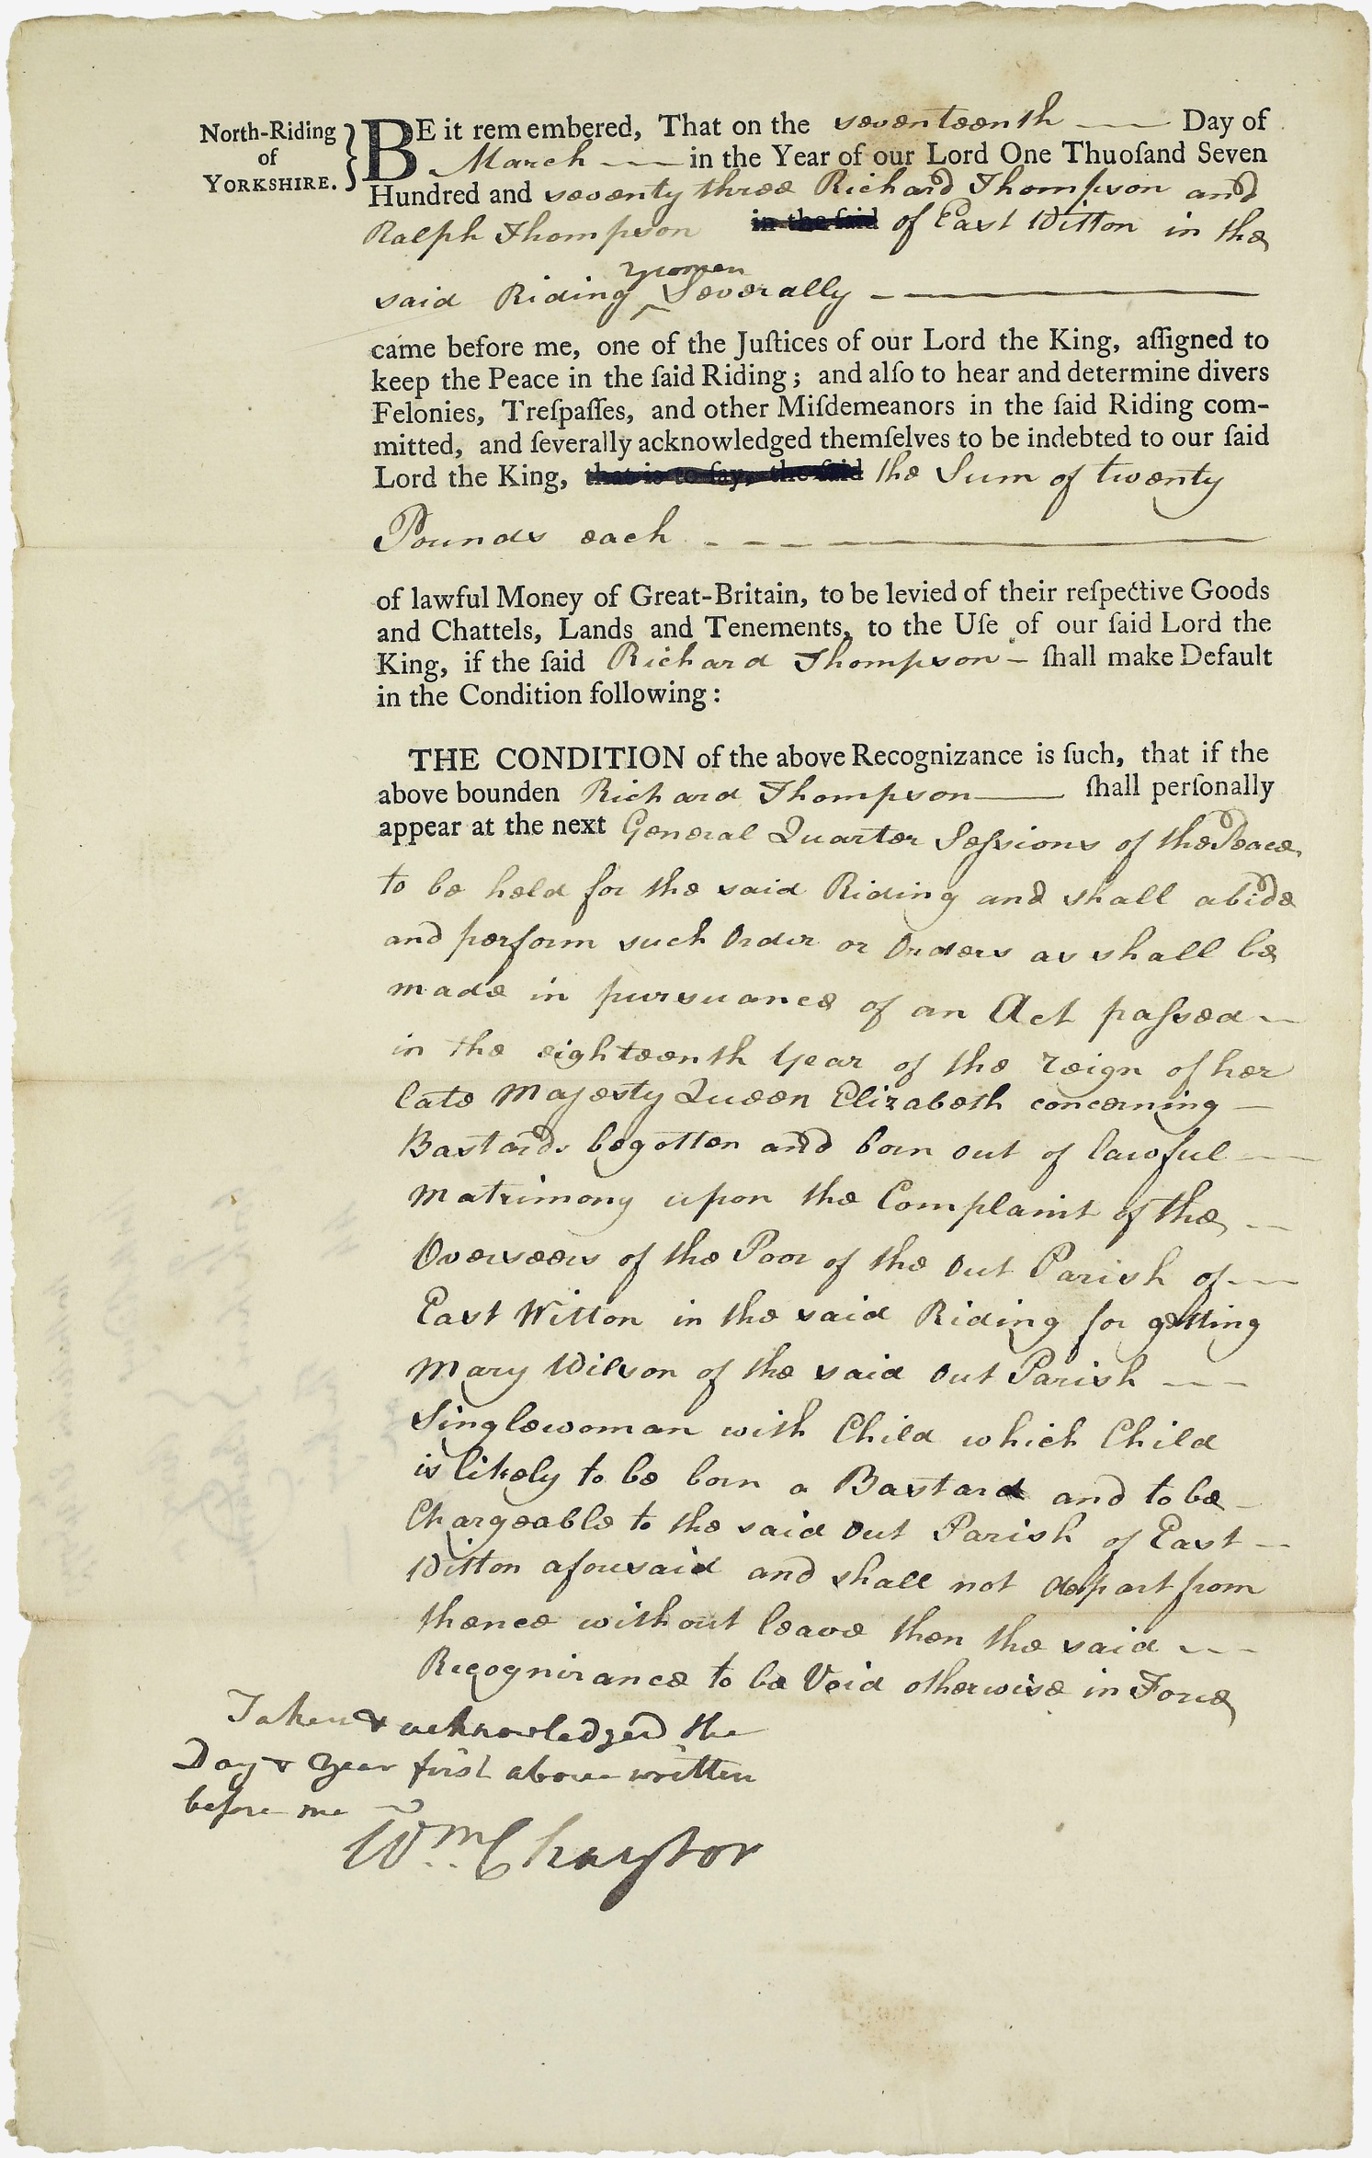 North-Riding
of
YORKSHIRE.
BE it remembered, That on the seventeenth Day of
March in the Year of our Lord One Thuoſand Seven
Hundred and seventy three Richard Thompson and
Ralph Thompson in the ſaid of East Witton in the
yeomen
said Riding ‸ Severally
came before me, one of the Juſtices of our Lord the King, aſſigned to
keep the Peace in the ſaid Riding; and alſo to hear and determine divers
Felonies, Treſpaſſes, and other Miſdemeanors in the ſaid Riding com-
mitted, and ſeverally acknowledged themſelves to be indebted to our ſaid
Lord the King, that is to ſay, the ſaid the Sum of twenty
Pounds each
of lawful Money of Great-Britain, to be levied of their reſpective Goods
and Chattels, Lands and Tenements, to the Uſe of our ſaid Lord the
King, if the ſaid Richard Thompson – ſhall make Default
in the Condition following:
THE CONDITION of the above Recognizance is ſuch, that if the
above bounden Richard Thompson ſhall perſonally
appear at the next General Quarter Seſsions of the Peace
to be held for the said Riding and shall abide
and perform such Order or Orders as shall be
made in pursuance of an Act paſsed
in the eighteenth Year of the reign of her
late Majesty Queen Elizabeth concerning
Bastards begotten and born out of lawful
Matrimony upon the Complaint of the
Overseers of the Poor of the Out Parish of
East Witton in the said Riding for getting
Mary Wilson of the said Out Parish
Singlewoman with Child which Child
is likely to be born a Bastard and to be
Chargeable to the said Out Parish of East
Witton aforesaid and shall not depart from
thence without leave then the said
Recognizance to be Void otherwise in Force
Taken & acknowledged the
Day & Year first above written
before me
Wm. Chaytor